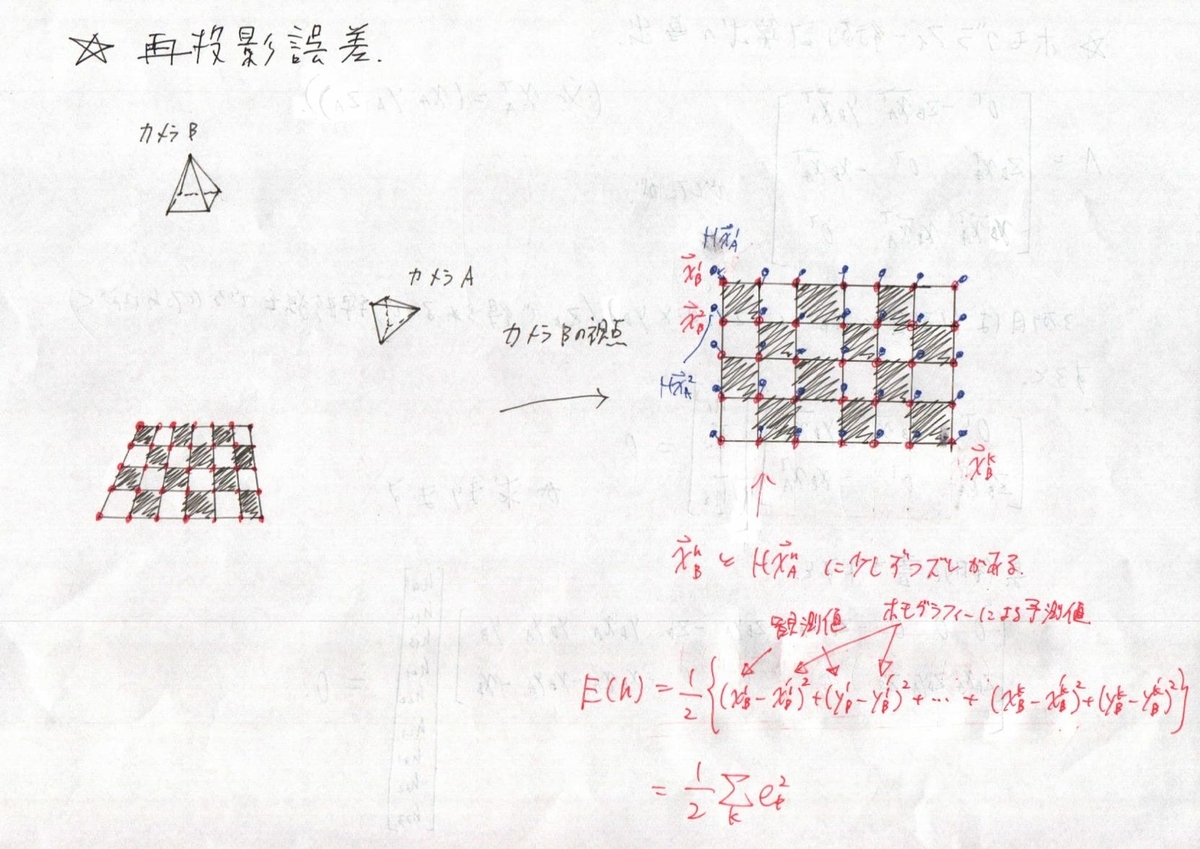 ☆ 再投影誤差.
カメラB
カメラA
カメラBの視点
Hx⃗_A^1
x⃗_B^1
x⃗_B^2
Hx⃗_A^2
x⃗_B^k
x⃗_B^n と Hx⃗_A^n に少しずつズレがある.
観測値
ホモグラフィーによる予測値
E(h) = 1/2 {(x_B^1 - x_B^1)^2 + (y_B^1 - y_B^1)^2 + … + (x_B^k - x_B^k)^2 + (y_B^k - y_B^k)^2}
= 1/2 Σ_k e_k^2